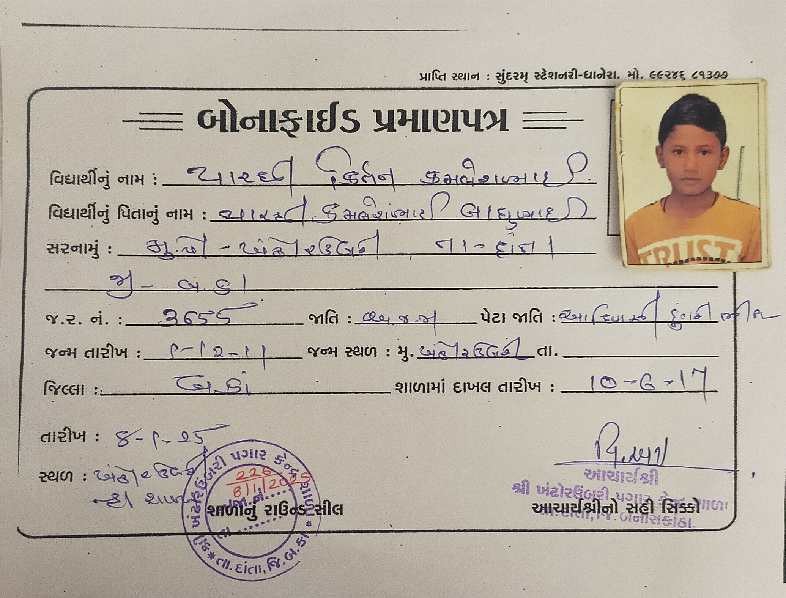 પ્રાપ્તિ સ્થાન : સુંદરમ્ સ્ટેશનરી-ધાનેરા. મો. ૯૯૨૪૬ ૮૧૩૭૭
બોનાફાઈડ પ્રમાણપત્ર
વિદ્યાર્થીનું નામ : પારઘી કિર્તન કમલેશભાઈ
વિદ્યાર્થીનું પિતાનું નામ : પારઘી કમલેશભાઈ બાબુભાઈ
સરનામું : મુ.પો - ખંઢોરઉંબરી તા - દાંતા
જી - બ.કાં
જ.ર. નં. : 3655 જાતિ : અ.જ.જા પેટા જાતિ : આદિવાસી ડુંગરી ભીલ
જન્મ તારીખ : ૧-૧૨-૧૧ જન્મ સ્થળ : મુ. ખંઢોરઉંબરી તા.
જિલ્લા : બ.કાં શાળામાં દાખલ તારીખ : 10-6-17
તારીખ : ૮-૧-૨૫
સ્થળ : ખંઢોરઉંબરી
પ્રા શાળા
શાળાનું રાઉન્ડ સીલ
ખંઢોરઉંબરી પગાર કેન્દ્ર શાળા
226
8/1/2025
તા. દાંતા, જિ. બ.કાં.
આચાર્યશ્રી
શ્રી ખંઢોરઉંબરી પગાર કેન્દ્ર શાળા
તા.દાંતા, જિ. બનાસકાંઠા.
આચાર્યશ્રીનો સહી સિક્કો
TRUST